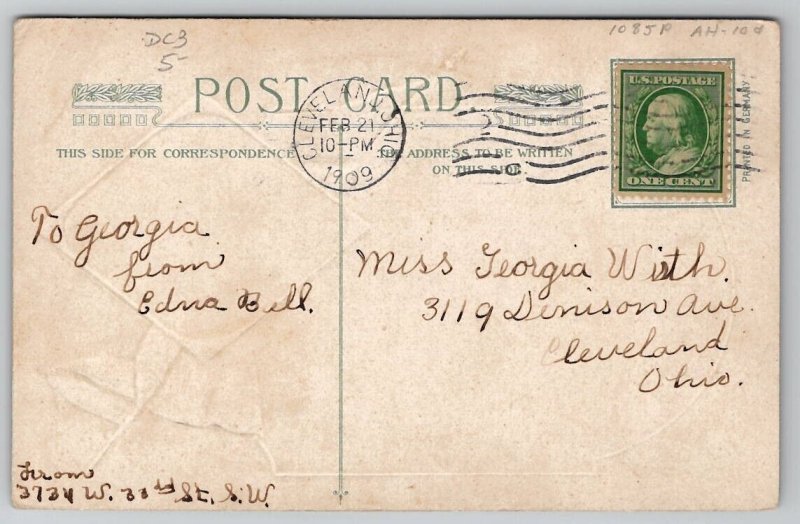 DC3
5-
1085A AH-10d
POST CARD
THIS SIDE FOR CORRESPONDENCE
THE ADDRESS TO BE WRITTEN
ON THIS SIDE.
CLEVELAND, OHIO
FEB 21
10-PM
1909
U.S. POSTAGE
ONE CENT
PRINTED IN GERMANY
To Georgia
from
Edna Bell.
Miss Georgia Wirth.
3119 Denison Ave.
Cleveland
Ohio.
From
3734 W. 33rd St. S.W.